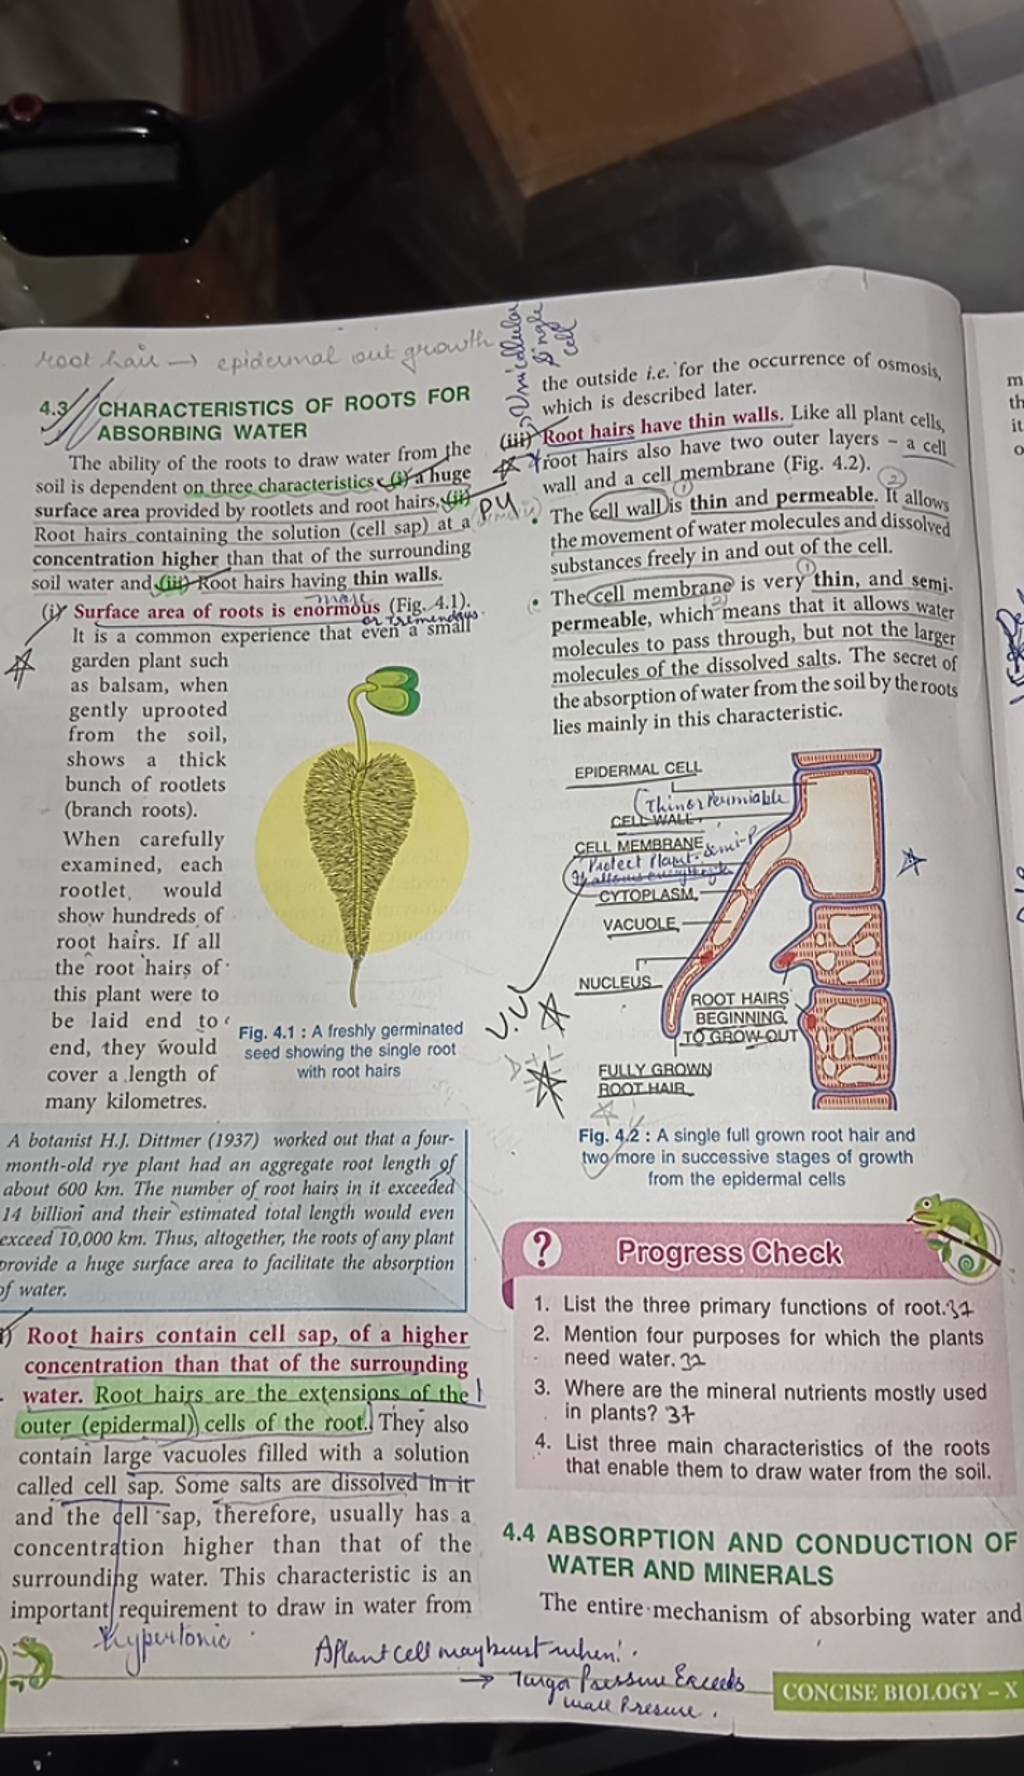 root hair → epidermal out growth
Unicellular
Single
cell
4.3 CHARACTERISTICS OF ROOTS FOR
ABSORBING WATER
The ability of the roots to draw water from the
soil is dependent on three characteristics (i) a huge
surface area provided by rootlets and root hairs, (ii)
Root hairs containing the solution (cell sap) at a
concentration higher than that of the surrounding
soil water and (iii) Root hairs having thin walls.
(i) Surface area of roots is enormous (Fig. 4.1).
or Tremendous
It is a common experience that even a small
garden plant such
as balsam, when
gently uprooted
from the soil,
shows a thick
bunch of rootlets
(branch roots).
When carefully
examined, each
rootlet, would
show hundreds of
root hairs. If all
the root hairs of
this plant were to
be laid end to
end, they would
cover a length of
many kilometres.
Fig. 4.1 : A freshly germinated
seed showing the single root
with root hairs
A botanist H.J. Dittmer (1937) worked out that a four-
month-old rye plant had an aggregate root length of
about 600 km. The number of root hairs in it exceeded
14 billion and their estimated total length would even
exceed 10,000 km. Thus, altogether, the roots of any plant
provide a huge surface area to facilitate the absorption
of water.
i) Root hairs contain cell sap, of a higher
concentration than that of the surrounding
water. Root hairs are the extensions of the
outer (epidermal) cells of the root. They also
contain large vacuoles filled with a solution
called cell sap. Some salts are dissolved in it
and the cell sap, therefore, usually has a
concentration higher than that of the
surrounding water. This characteristic is an
important requirement to draw in water from
Hypertonic
the outside i.e. for the occurrence of osmosis,
which is described later.
(iii) Root hairs have thin walls. Like all plant cells,
root hairs also have two outer layers – a cell
wall and a cell membrane (Fig. 4.2).
• The cell wall is thin and permeable. It allows
the movement of water molecules and dissolved
substances freely in and out of the cell.
• The cell membrane is very thin, and semi-
permeable, which means that it allows water
molecules to pass through, but not the larger
molecules of the dissolved salts. The secret of
the absorption of water from the soil by the roots
lies mainly in this characteristic.
EPIDERMAL CELL
CELL WALL
CELL MEMBRANE
Protect Plant
CYTOPLASM
VACUOLE
NUCLEUS
ROOT HAIRS
BEGINNING
TO GROW OUT
FULLY GROWN
ROOT HAIR
Fig. 4.2 : A single full grown root hair and
two more in successive stages of growth
from the epidermal cells
? Progress Check
1. List the three primary functions of root. 37
2. Mention four purposes for which the plants
need water. 32
3. Where are the mineral nutrients mostly used
in plants? 37
4. List three main characteristics of the roots
that enable them to draw water from the soil.
4.4 ABSORPTION AND CONDUCTION OF
WATER AND MINERALS
The entire mechanism of absorbing water and
A plant cell may burst when:
→ Turgor Pressure Exceeds
wall Presure.
CONCISE BIOLOGY – X